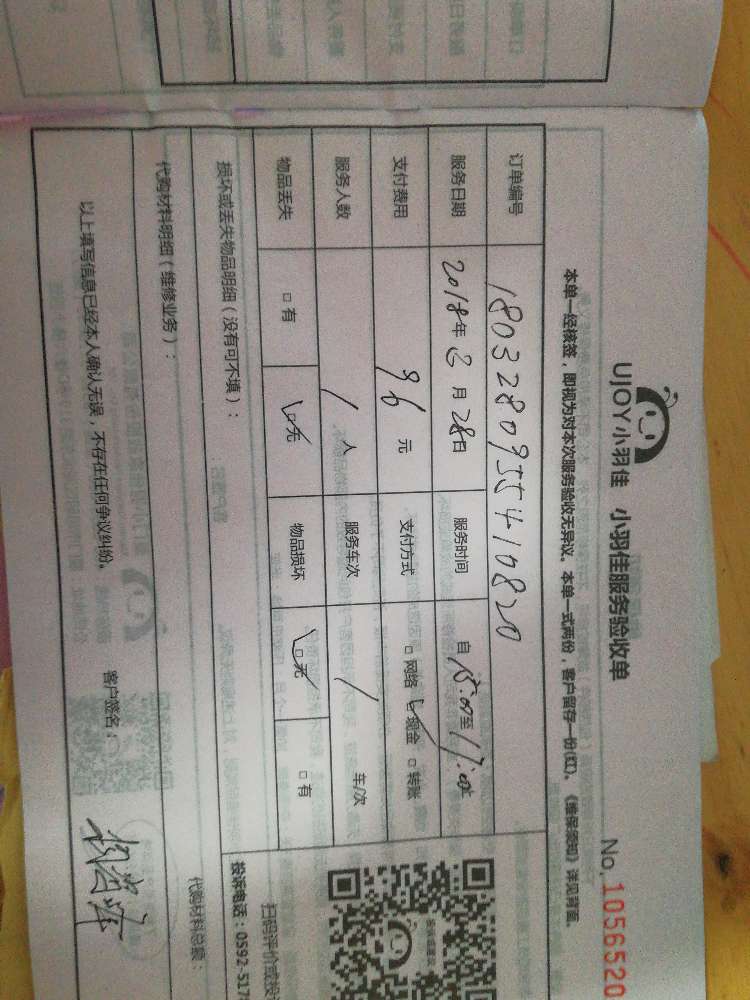 UJOY小羽佳 小羽佳服务验收单
No.1056520
本单一经核签，即视为对本次服务验收无异议。本单一式两份，客户留存一份(红)。《维保须知》详见背面。
订单编号 1803280955410820
服务日期 2018年3月28日 服务时间 自15:00至17:00止
支付费用 96元 支付方式 □网络 ☑现金 □转账
服务人数 1人 服务车次 / 车/次
物品丢失 □有 ☑无 物品损坏 ☑无 □有
损坏或丢失物品明细（没有可不填）：
代购材料明细（维修业务）： 代购材料总额：
以上填写信息已经本人确认无误，不存在任何争议纠纷。 客户签名：
扫码评价或投
投诉电话：0592-517